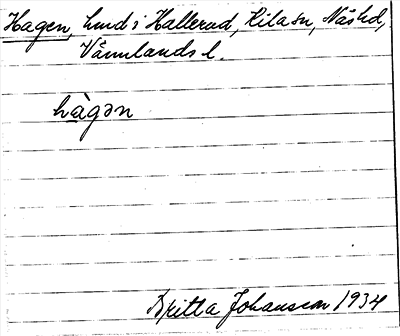 Hagen, hmd i Hallerud, Kila sn, Näs hd,
Värmlands l.
hàgən
Britta Johansson 1934